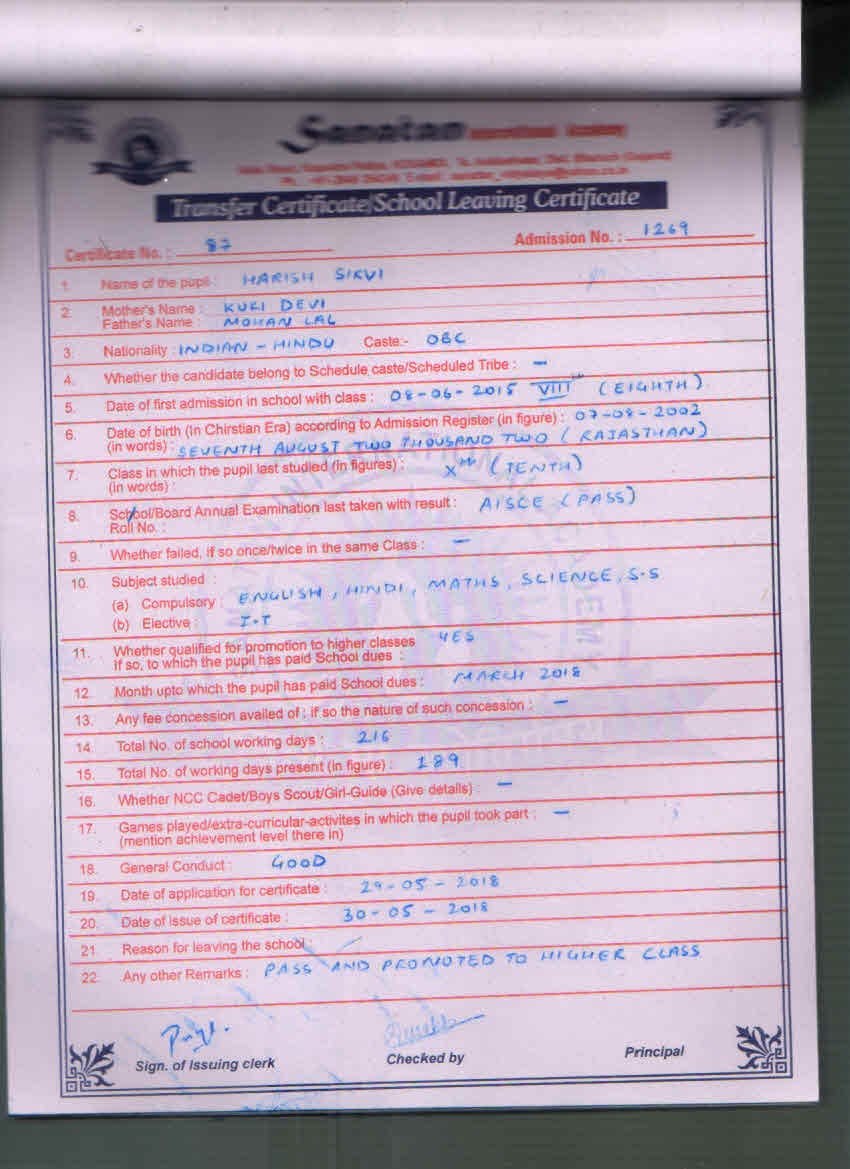 Sanatan International Academy
Transfer Certificate/School Leaving Certificate
Certificate No. : 87
Admission No. : 1269
1. Name of the pupil : HARISH SIRVI
2. Mother's Name : KUKI DEVI
Father's Name : MOHAN LAL
3. Nationality : INDIAN - HINDU Caste:- OBC
4. Whether the candidate belong to Schedule caste/Scheduled Tribe : -
5. Date of first admission in school with class : 08-06-2015 VIIIth (EIGHTH)
6. Date of birth (In Chirstian Era) according to Admission Register (in figure) : 07-08-2002
(in words) : SEVENTH AUGUST TWO THOUSAND TWO (RAJASTHAN)
7. Class in which the pupil last studied (in figures) : Xth (TENTH)
(in words) :
8. School/Board Annual Examination last taken with result : AISCE (PASS)
Roll No. :
9. Whether failed, if so once/twice in the same Class : -
10. Subject studied :
(a) Compulsory : ENGLISH, HINDI, MATHS, SCIENCE, S.S
(b) Elective : I.T
11. Whether qualified for promotion to higher classes YES
If so, to which the pupil has paid School dues :
12. Month upto which the pupil has paid School dues : MARCH 2018
13. Any fee concession availed of : if so the nature of such concession : -
14. Total No. of school working days : 216
15. Total No. of working days present (in figure) : 189
16. Whether NCC Cadet/Boys Scout/Girl-Guide (Give details) : -
17. Games played/extra-curricular-activites in which the pupil took part : -
(mention achievement level there in)
18. General Conduct : GOOD
19. Date of application for certificate : 29-05-2018
20. Date of issue of certificate : 30-05-2018
21. Reason for leaving the school :
22. Any other Remarks : PASS AND PROMOTED TO HIGHER CLASS
Sign. of Issuing clerk
Checked by
Principal